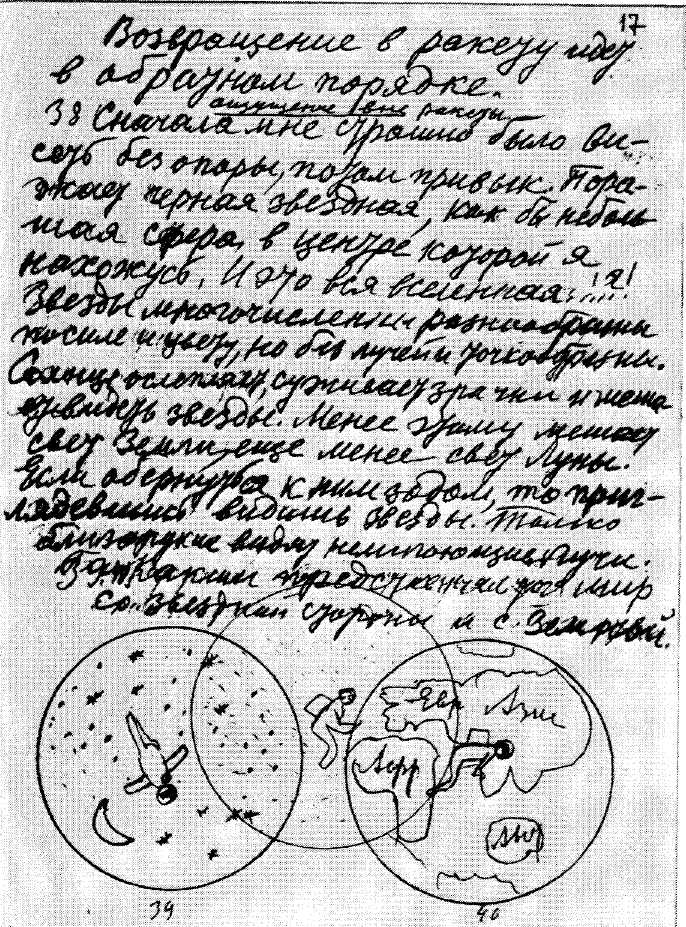 17
Возвращение в ракету идет
в обратном порядке.
ощущение вне ракеты
38 Сначала мне страшно было ви-
сеть без опоры, потом привык. Пора-
жает черная звездная, как бы неболь
шая сфера, в центре которой я
нахожусь. И это вся вселенная!
Звезды многочисленны разнообразны
по силе и цвету, но без лучей и точкообразны.
Солнце ослепляет, суживает зрачки и меша
ет видеть звезды. Менее этому мешает
свет Земли, еще менее свет Луны.
Если обернуться к ним задом, то приг-
лядевшись видишь звезды. Только
близорукие видят немигающие лучи.
39. таким представился мне мир
со звездной стороны и с Земной.
Евр
Азия
Афр
Ав
39
40